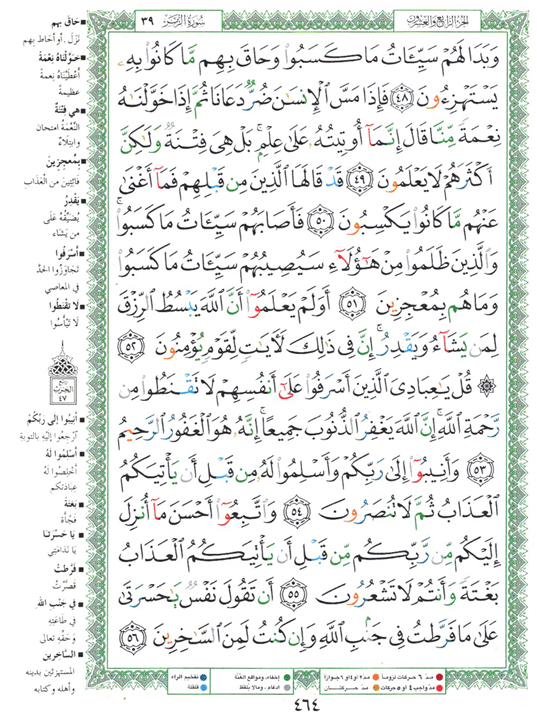 الجزء الرابع والعشرون
سورة الزمر
٣٩
وَبَدَا لَهُمْ سَيِّـَٔاتُ مَا كَسَبُوا۟ وَحَاقَ بِهِم مَّا كَانُوا۟ بِهِۦ
يَسْتَهْزِءُونَ ٤٨ فَإِذَا مَسَّ ٱلْإِنسَـٰنَ ضُرٌّ دَعَانَا ثُمَّ إِذَا خَوَّلْنَـٰهُ
نِعْمَةً مِّنَّا قَالَ إِنَّمَآ أُوتِيتُهُۥ عَلَىٰ عِلْمٍۭ ۚ بَلْ هِىَ فِتْنَةٌ وَلَـٰكِنَّ
أَكْثَرَهُمْ لَا يَعْلَمُونَ ٤٩ قَدْ قَالَهَا ٱلَّذِينَ مِن قَبْلِهِمْ فَمَآ أَغْنَىٰ
عَنْهُم مَّا كَانُوا۟ يَكْسِبُونَ ٥٠ فَأَصَابَهُمْ سَيِّـَٔاتُ مَا كَسَبُوا۟ ۚ
وَٱلَّذِينَ ظَلَمُوا۟ مِنْ هَـٰٓؤُلَآءِ سَيُصِيبُهُمْ سَيِّـَٔاتُ مَا كَسَبُوا۟
وَمَا هُم بِمُعْجِزِينَ ٥١ أَوَلَمْ يَعْلَمُوٓا۟ أَنَّ ٱللَّهَ يَبْسُطُ ٱلرِّزْقَ
لِمَن يَشَآءُ وَيَقْدِرُ ۚ إِنَّ فِى ذَٰلِكَ لَـَٔايَـٰتٍ لِّقَوْمٍ يُؤْمِنُونَ ٥٢
۞ قُلْ يَـٰعِبَادِىَ ٱلَّذِينَ أَسْرَفُوا۟ عَلَىٰٓ أَنفُسِهِمْ لَا تَقْنَطُوا۟ مِن
رَّحْمَةِ ٱللَّهِ ۚ إِنَّ ٱللَّهَ يَغْفِرُ ٱلذُّنُوبَ جَمِيعًا ۚ إِنَّهُۥ هُوَ ٱلْغَفُورُ ٱلرَّحِيمُ
٥٣ وَأَنِيبُوٓا۟ إِلَىٰ رَبِّكُمْ وَأَسْلِمُوا۟ لَهُۥ مِن قَبْلِ أَن يَأْتِيَكُمُ
ٱلْعَذَابُ ثُمَّ لَا تُنصَرُونَ ٥٤ وَٱتَّبِعُوٓا۟ أَحْسَنَ مَآ أُنزِلَ
إِلَيْكُم مِّن رَّبِّكُم مِّن قَبْلِ أَن يَأْتِيَكُمُ ٱلْعَذَابُ
بَغْتَةً وَأَنتُمْ لَا تَشْعُرُونَ ٥٥ أَن تَقُولَ نَفْسٌ يَـٰحَسْرَتَىٰ
عَلَىٰ مَا فَرَّطتُ فِى جَنۢبِ ٱللَّهِ وَإِن كُنتُ لَمِنَ ٱلسَّـٰخِرِينَ ٥٦
■ حاق بهم
نَزَلَ. أو أحاط بهم
■ خوّلناه نعمة
أعطيناه نعمةً
عظيمة
■ هي فتنة
النّعمة امتحان
وابتلاء
■ بمعجزين
فائتين من العذاب
■ يقدر
يُضيّقه على
من يشاء
■ أسرفوا
تجاوزوا الحدّ
في المعاصي
■ لا تقنطوا
لا تيأسوا
الحزب
٤٧
■ أنيبوا إلى ربكم
ارجعوا إليه بالتوبة
■ أسلموا له
أخلصوا له
عبادتكم
■ بغتة
فجأة
■ يا حسرتا
يا ندامتي
■ فرّطت
قصّرت
■ في جنب الله
في طاعته
وحقّه تعالى
■ الساخرين
المستهزئين بدينه
وأهله وكتابه
مدّ ٦ حركات لزوماً
مدّ ٢ أو ٤ أو ٦ جوازاً
إخفاء، ومواقع الغُنّة
تفخيم الراء
مدّ واجب ٤ أو ٥ حركات
مدّ حركتان
ادغام، وما لا يُلفظ
قلقلة
٤٦٤